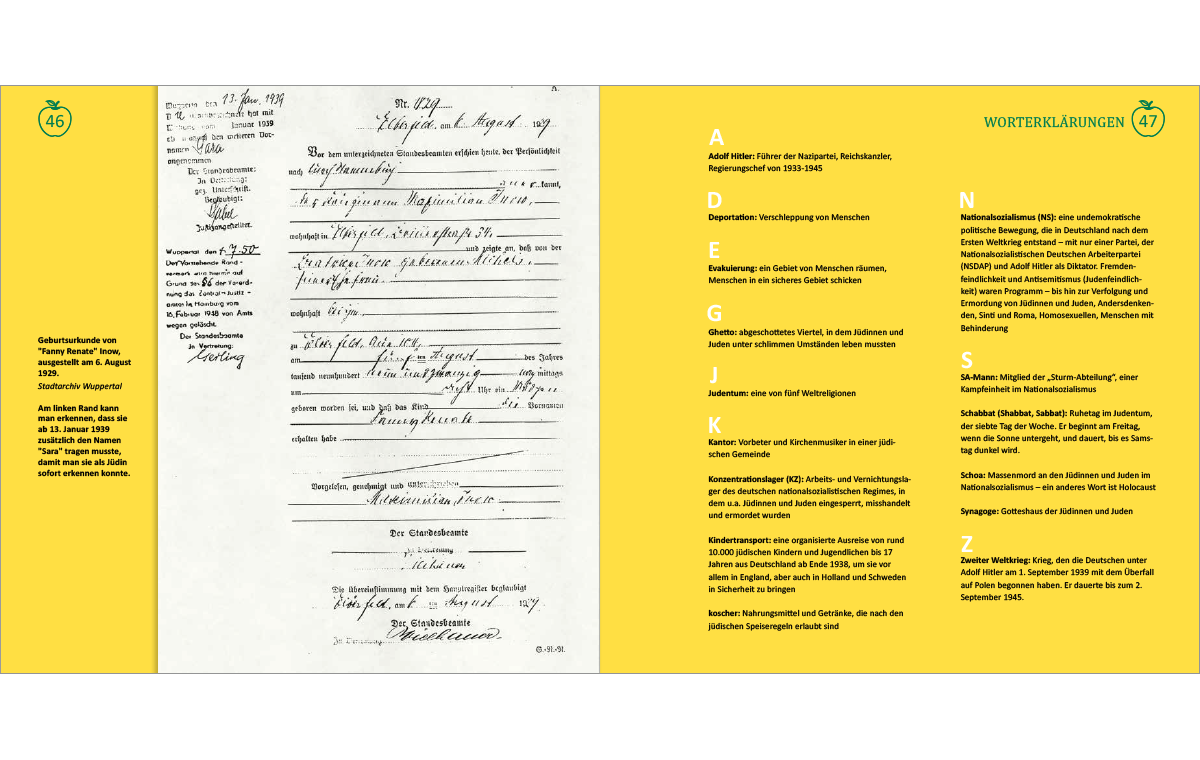 46
Geburtsurkunde von
"Fanny Renate" Inow,
ausgestellt am 6. August
1929.
Stadtarchiv Wuppertal
Am linken Rand kann
man erkennen, dass sie
ab 13. Januar 1939
zusätzlich den Namen
"Sara" tragen musste,
damit man sie als Jüdin
sofort erkennen konnte.
Wuppertal den 13. Jan. 1939
hat mit
Januar 1939
den weiteren Vor-
namen Sara
angenommen
Der Standesbeamte:
In Vertretung:
gez. Unterschrift.
Beglaubigt:
Justizangestellter.
Wuppertal den
Der Vorstehende Rand-
vermerk wird hiermit auf
Grund des 86 der Verord-
nung des Zentral-Justiz-
amtes in Hamburg vom
16. Februar 1948 von Amts
wegen gelöscht.
Der Standesbeamte
In Vertretung:
Nr. 829
Elberfeld, am 6. August 1929
Vor dem unterzeichneten Standesbeamten erschien heute, der Persönlichkeit
nach
kannt,
Maximilian Inow,
wohnhaft in Elberfeld,
und zeigte an, daß von der
wohnhaft
zu Elberfeld,
am August des Jahres
tausend neunhundert mittags
um Uhr ein
geboren worden sei, und daß das Kind Vornamen
Fanny Renate
erhalten habe
Vorgelesen, genehmigt und unterschrieben
Maximilian Inow
Der Standesbeamte
In Vertretung
Die Übereinstimmung mit dem Hauptregister beglaubigt
Elberfeld, am 6. August 1929
Der Standesbeamte
In Vertretung
WORTERKLÄRUNGEN 47
A
Adolf Hitler: Führer der Nazipartei, Reichskanzler,
Regierungschef von 1933-1945
D
Deportation: Verschleppung von Menschen
E
Evakuierung: ein Gebiet von Menschen räumen,
Menschen in ein sicheres Gebiet schicken
G
Ghetto: abgeschottetes Viertel, in dem Jüdinnen und
Juden unter schlimmen Umständen leben mussten
J
Judentum: eine von fünf Weltreligionen
K
Kantor: Vorbeter und Kirchenmusiker in einer jüdi-
schen Gemeinde
Konzentrationslager (KZ): Arbeits- und Vernichtungsla-
ger des deutschen nationalsozialistischen Regimes, in
dem u.a. Jüdinnen und Juden eingesperrt, misshandelt
und ermordet wurden
Kindertransport: eine organisierte Ausreise von rund
10.000 jüdischen Kindern und Jugendlichen bis 17
Jahren aus Deutschland ab Ende 1938, um sie vor
allem in England, aber auch in Holland und Schweden
in Sicherheit zu bringen
koscher: Nahrungsmittel und Getränke, die nach den
jüdischen Speiseregeln erlaubt sind
N
Nationalsozialismus (NS): eine undemokratische
politische Bewegung, die in Deutschland nach dem
Ersten Weltkrieg entstand – mit nur einer Partei, der
Nationalsozialistischen Deutschen Arbeiterpartei
(NSDAP) und Adolf Hitler als Diktator. Fremden-
feindlichkeit und Antisemitismus (Judenfeindlich-
keit) waren Programm – bis hin zur Verfolgung und
Ermordung von Jüdinnen und Juden, Andersdenken-
den, Sinti und Roma, Homosexuellen, Menschen mit
Behinderung
S
SA-Mann: Mitglied der „Sturm-Abteilung“, einer
Kampfeinheit im Nationalsozialismus
Schabbat (Shabbat, Sabbat): Ruhetag im Judentum,
der siebte Tag der Woche. Er beginnt am Freitag,
wenn die Sonne untergeht, und dauert, bis es Sams-
tag dunkel wird.
Schoa: Massenmord an den Jüdinnen und Juden im
Nationalsozialismus – ein anderes Wort ist Holocaust
Synagoge: Gotteshaus der Jüdinnen und Juden
Z
Zweiter Weltkrieg: Krieg, den die Deutschen unter
Adolf Hitler am 1. September 1939 mit dem Überfall
auf Polen begonnen haben. Er dauerte bis zum 2.
September 1945.